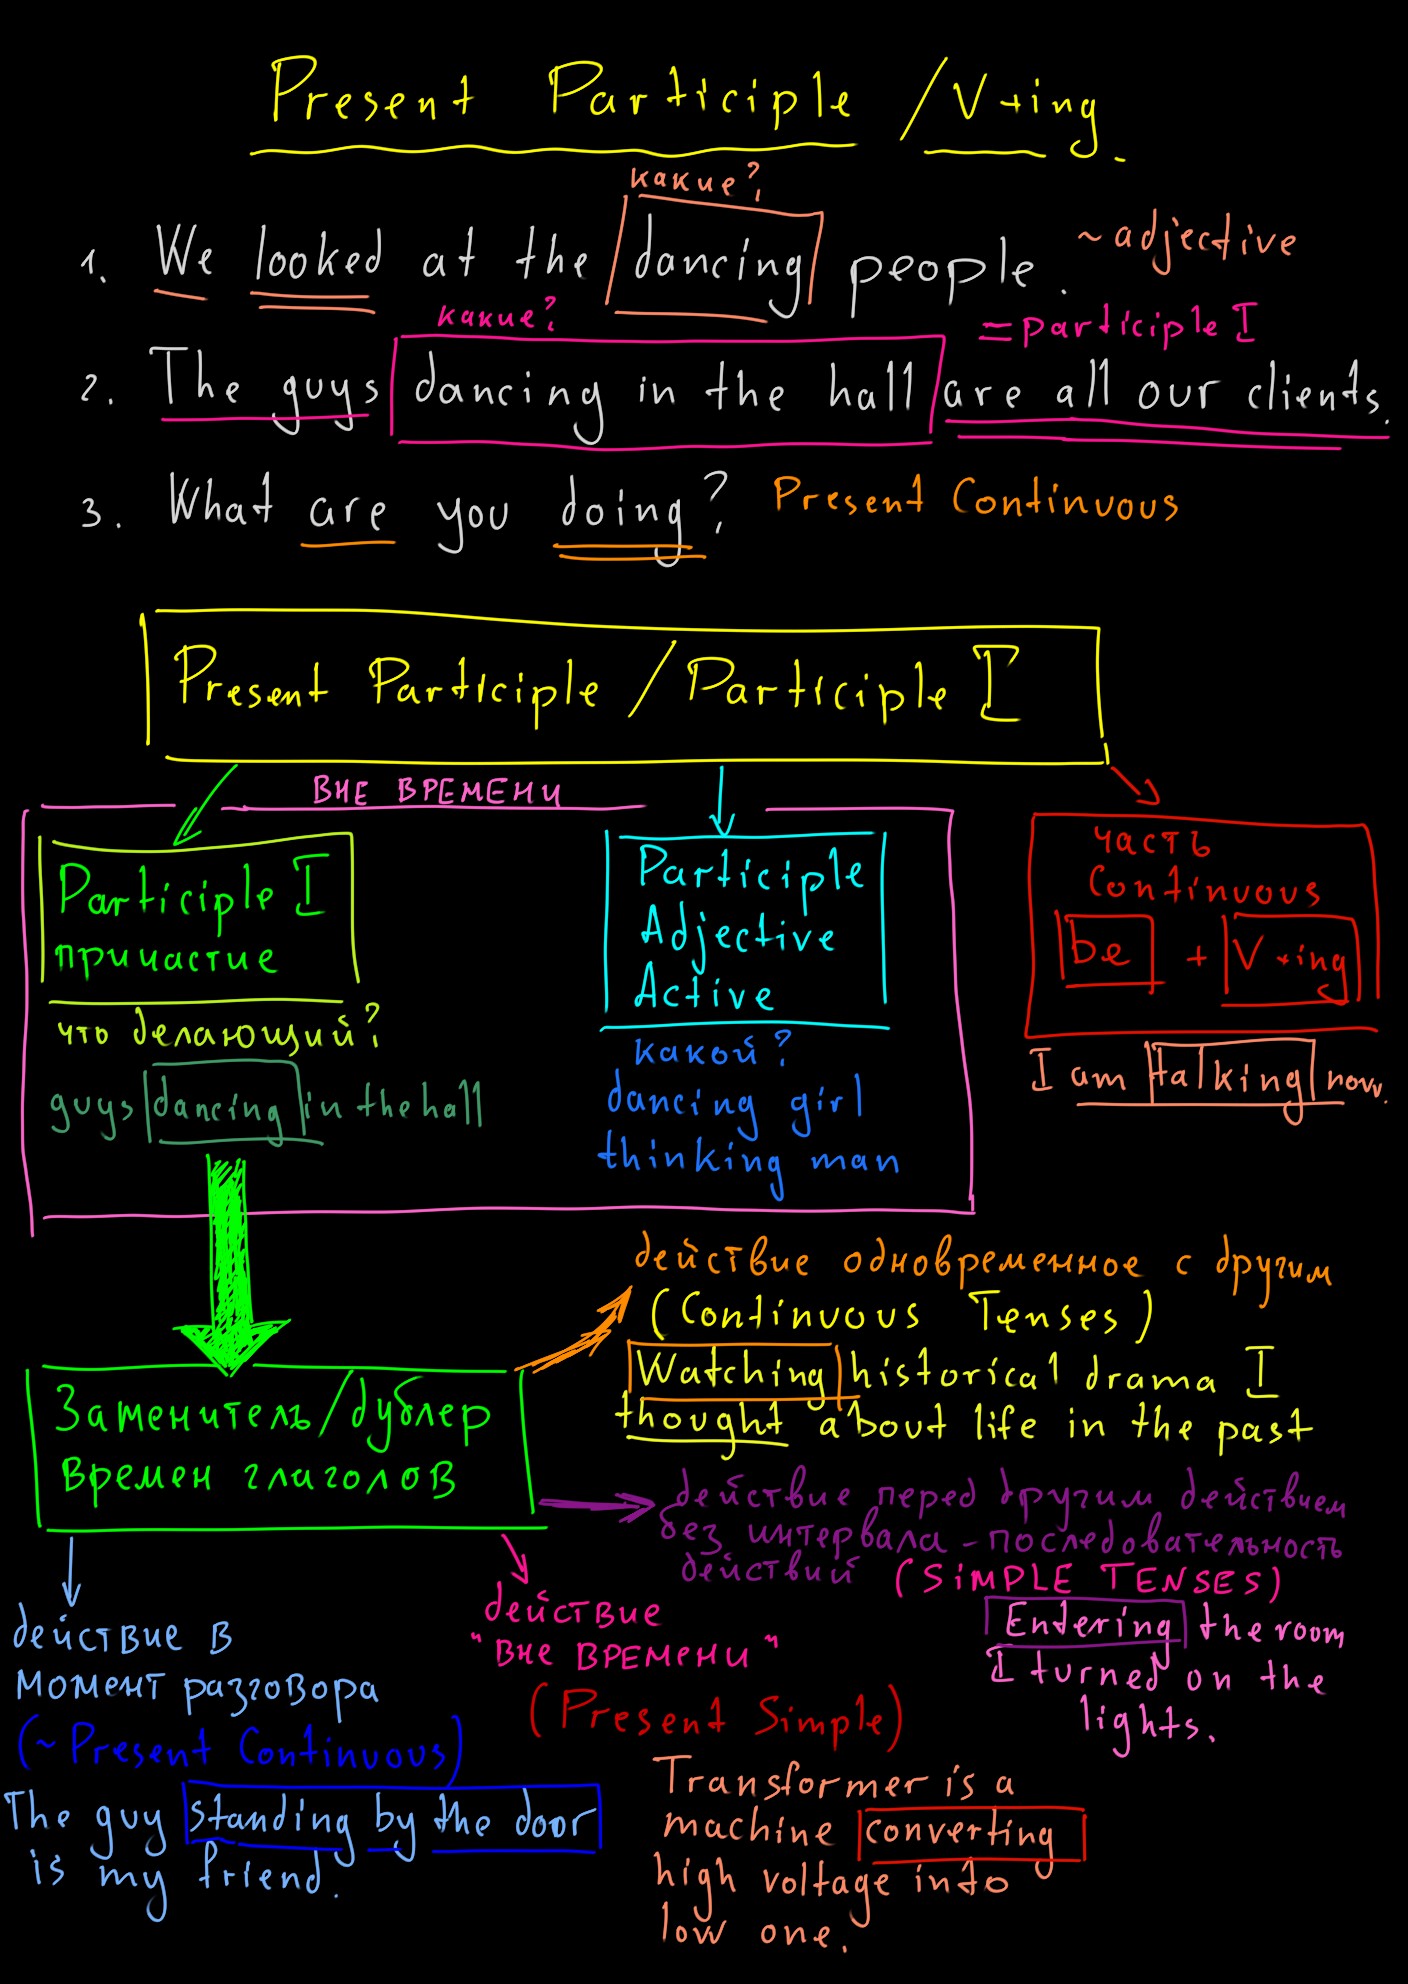 Present Participle / V+ing.
какие?
1. We looked at the dancing people.
~ adjective
какие?
= participle I
2. The guys dancing in the hall are all our clients.
3. What are you doing? Present Continuous
Present Participle / Participle I
ВНЕ ВРЕМЕНИ
Participle I
причастие
что делающий?
guys dancing in the hall
Participle
Adjective
Active
какой?
dancing girl
thinking man
часть
Continuous
be + V+ing
I am talking now.
Заменитель/дублер
времен глаголов
действие одновременное с другим
(Continuous Tenses)
Watching historical drama I
thought about life in the past
действие перед другим действием
без интервала - последовательность
действий (SIMPLE TENSES)
Entering the room
I turned on the
lights.
действие
"ВНЕ ВРЕМЕНИ"
(Present Simple)
Transformer is a
machine converting
high voltage into
low one.
действие в
момент разговора
(~ Present Continuous)
The guy standing by the door
is my friend.